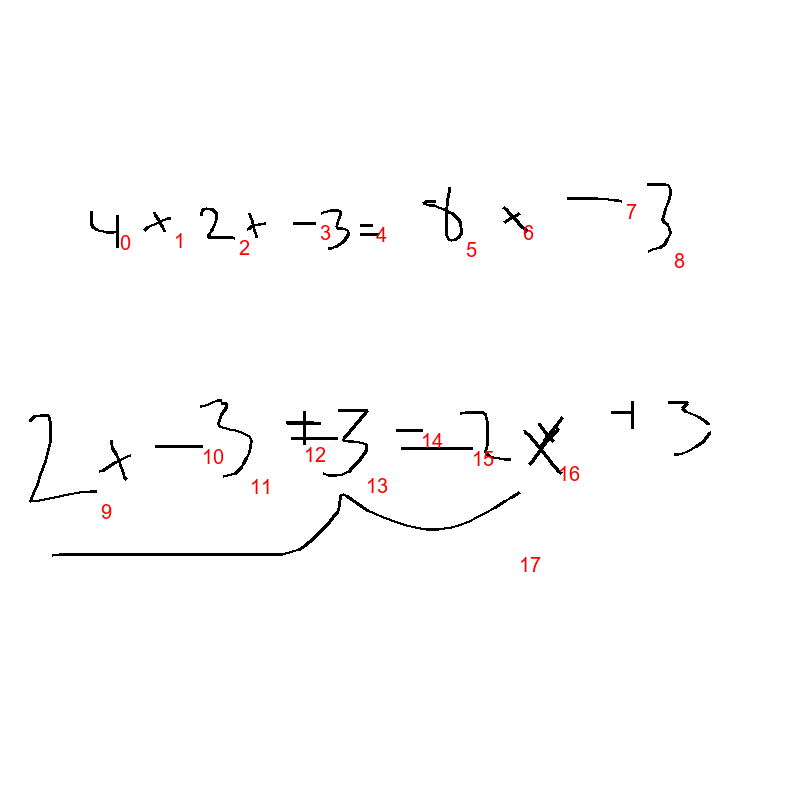 4 x 2 x -3 = 8 x -3
0 1 2 3 4 5 6 7 8
2 x -3 ± 3 = 2 x +3
9 10 11 12 13 14 15 16
17